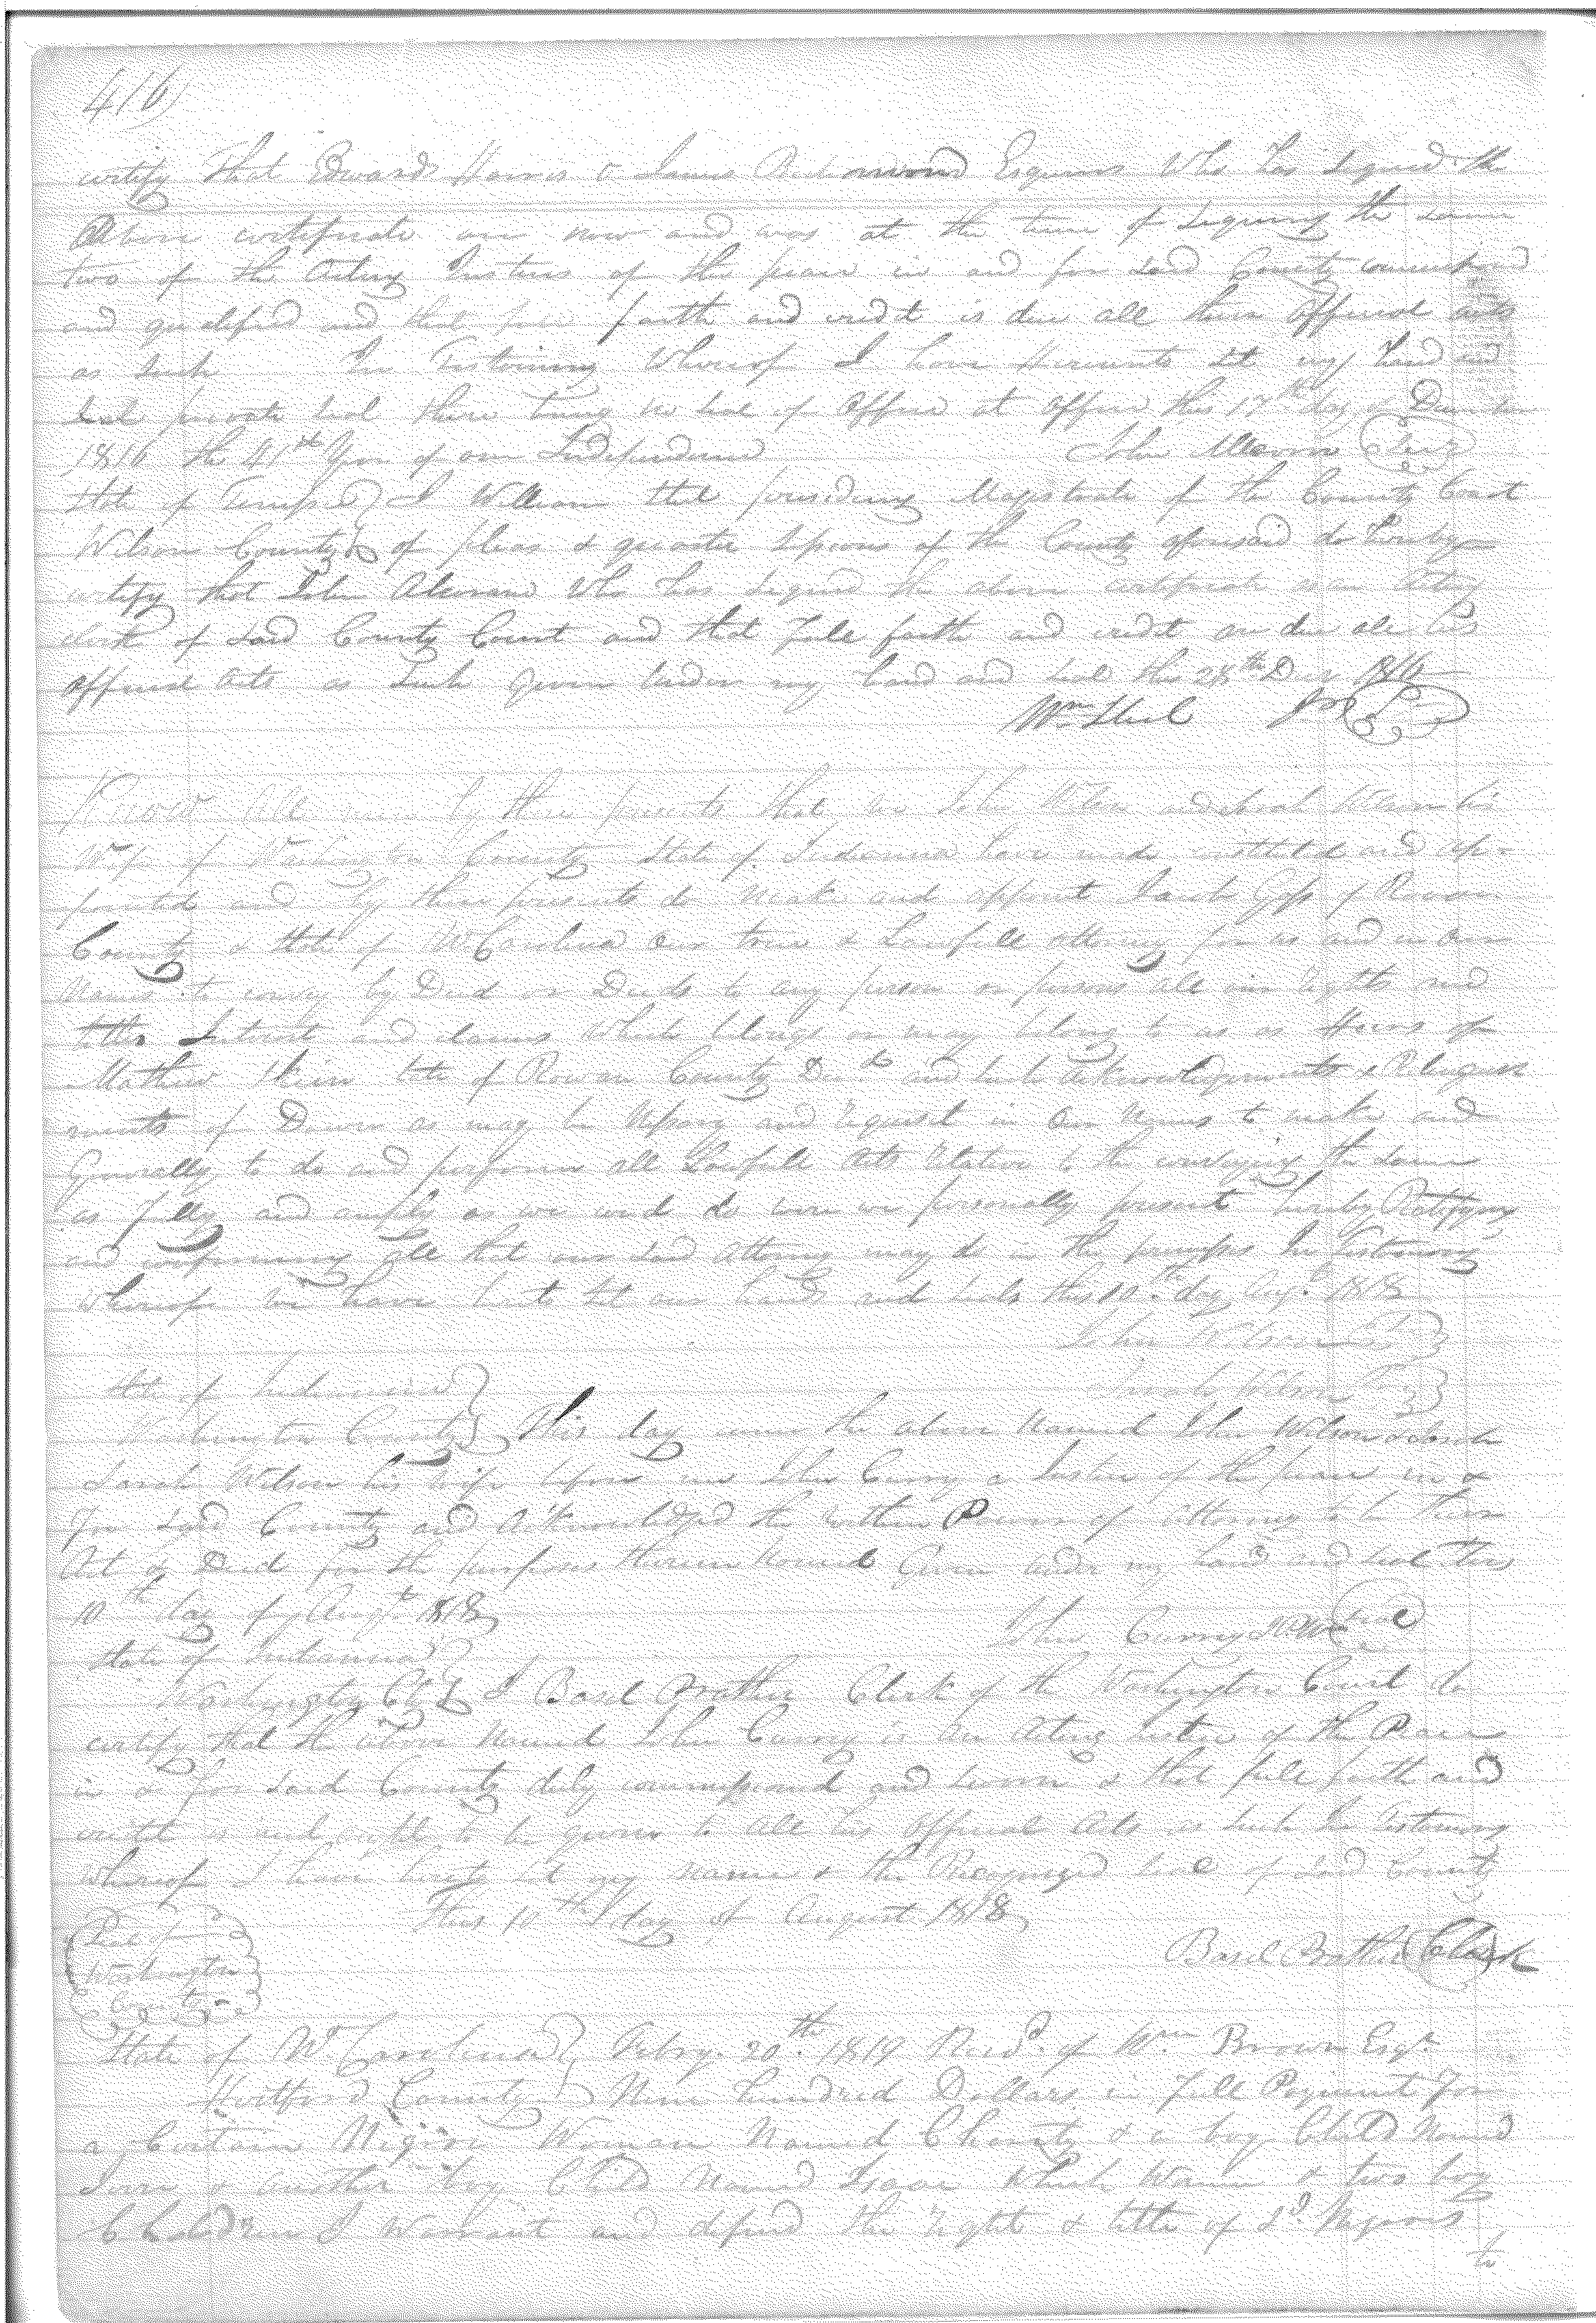 416
certify that Edward Harris & James Richmond Esquires Who has signed the
Above certificate are now and was at the time of signing the same
two of the Acting Justices of the peace in and for said County commissioned
and qualified and that full faith and credit is due all their official acts
as such In Testimony Whereof I have Hereunto set my hand and
seal private seal there being no seal of office at office this 17th day of December
1816 the 41st Year of our Independence John Seal
State of Tennessee } I William Steel presiding Magistrate of the County Court
Wilson County } of pleas & quarter Sessions of the County aforesaid do hereby
certify that John who has signed the above certificate is an Acting
clerk of said County Court and that full faith and credit are due all his
official acts as Such Given Under my hand and seal this 28th Decr 1816
Wm Steel
Know All men by these presents that we John Wilson and Sarah Wilson his
Wife of Washington County State of Indianna have made constituted and ap-
pointed and by these presents do make and appoint of Rowan
County & State of N Carolina our true & Lawfull attorney for us and in our
Names to convey by Deed or Deeds to any person or persons all our rights and
titles Interest and claims Which belongs or may belong to us as Heirs of
Mathew late of Rowan County Decd and such acknowledgements & Relinquish
ments of Dower as may be Nessary and requisit in Our Names to make and
Generally to do and perform all Lawfull acts relative to the conveying the same
as fully and amply as we could do were we personally present hereby Ratifying
and confirming all that our said attorney may do in the premises In Testimony
Whereof We have hereto set our hands and seals this 10th day Augt 1818
John Wilson
Sarah Wilson
State of Indianna }
Washington County } This day came the above Named John Wilson & Sarah
Sarah Wilson his wife before me John Curry a Justice of the peace in &
For said County and Acknowledged the within Power of Attorney to be their
Act & Deed for the purposes therein Named Given under my hand and seal this
10th day of Augt 1818
John Curry Seal
State of Indianna }
Washington Cty } I Basil Prather Clerk of the Washington Court do
certify that the above Named John Curry is an Acting Justice of the Peace
in & for said County duly commissioned and sworn & that full faith and
credit is and ought to be given to all his official Acts as Such In Testimony
Whereof I have hereto set my name & the Recognized seal of said County
This 10th day of August 1818
Basil Prather Clerk
Seal of
Washington
County
State of No Carolina } Febry. 20th 1819 Recd. of Wm Brown Esqr
Hertford County } Nine hundred Dollars in full Payment For
a Certain Negroe Woman Named Charity & a boy Child Named
& another boy Child Named Isaac Which Woman & two boy
Children I Warrant and defend the right & title of sd Negroes
to